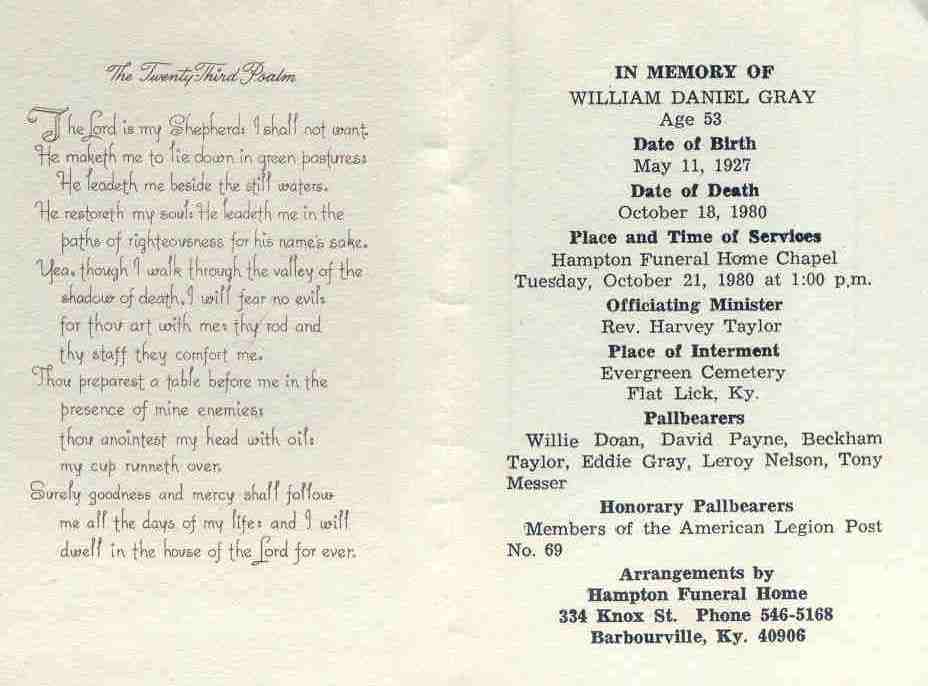 The Twenty-Third Psalm
The Lord is my Shepherd: I shall not want.
He maketh me to lie down in green pastures:
He leadeth me beside the still waters.
He restoreth my soul: He leadeth me in the
paths of righteousness for his name's sake.
Yea, though I walk through the valley of the
shadow of death, I will fear no evil:
for thou art with me: thy rod and
thy staff they comfort me.
Thou preparest a table before me in the
presence of mine enemies:
thou anointest my head with oil:
my cup runneth over.
Surely goodness and mercy shall follow
me all the days of my life: and I will
dwell in the house of the Lord for ever.
IN MEMORY OF
WILLIAM DANIEL GRAY
Age 53
Date of Birth
May 11, 1927
Date of Death
October 18, 1980
Place and Time of Services
Hampton Funeral Home Chapel
Tuesday, October 21, 1980 at 1:00 p.m.
Officiating Minister
Rev. Harvey Taylor
Place of Interment
Evergreen Cemetery
Flat Lick, Ky.
Pallbearers
Willie Doan, David Payne, Beckham
Taylor, Eddie Gray, Leroy Nelson, Tony
Messer
Honorary Pallbearers
Members of the American Legion Post
No. 69
Arrangements by
Hampton Funeral Home
334 Knox St. Phone 546-5168
Barbourville, Ky. 40906